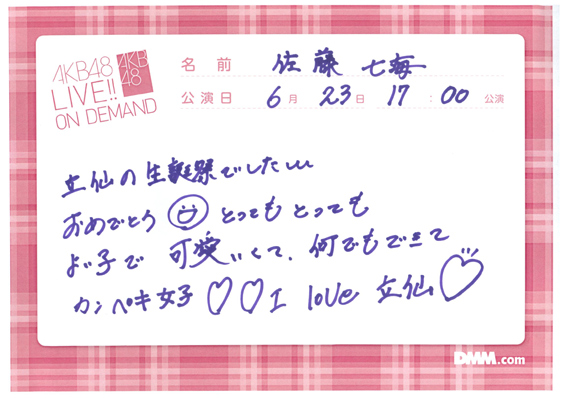 AKB48
LIVE!!
ON DEMAND
AKB
48
名前 佐藤 七海
公演日 6月 23日 17:00 公演
立仙の生誕祭でしたぃぃ
おめでとう とってもとっても
よい子で 可愛いくて、何でもできて
カンペキ女子♡♡I love 立仙♡
DMM.com